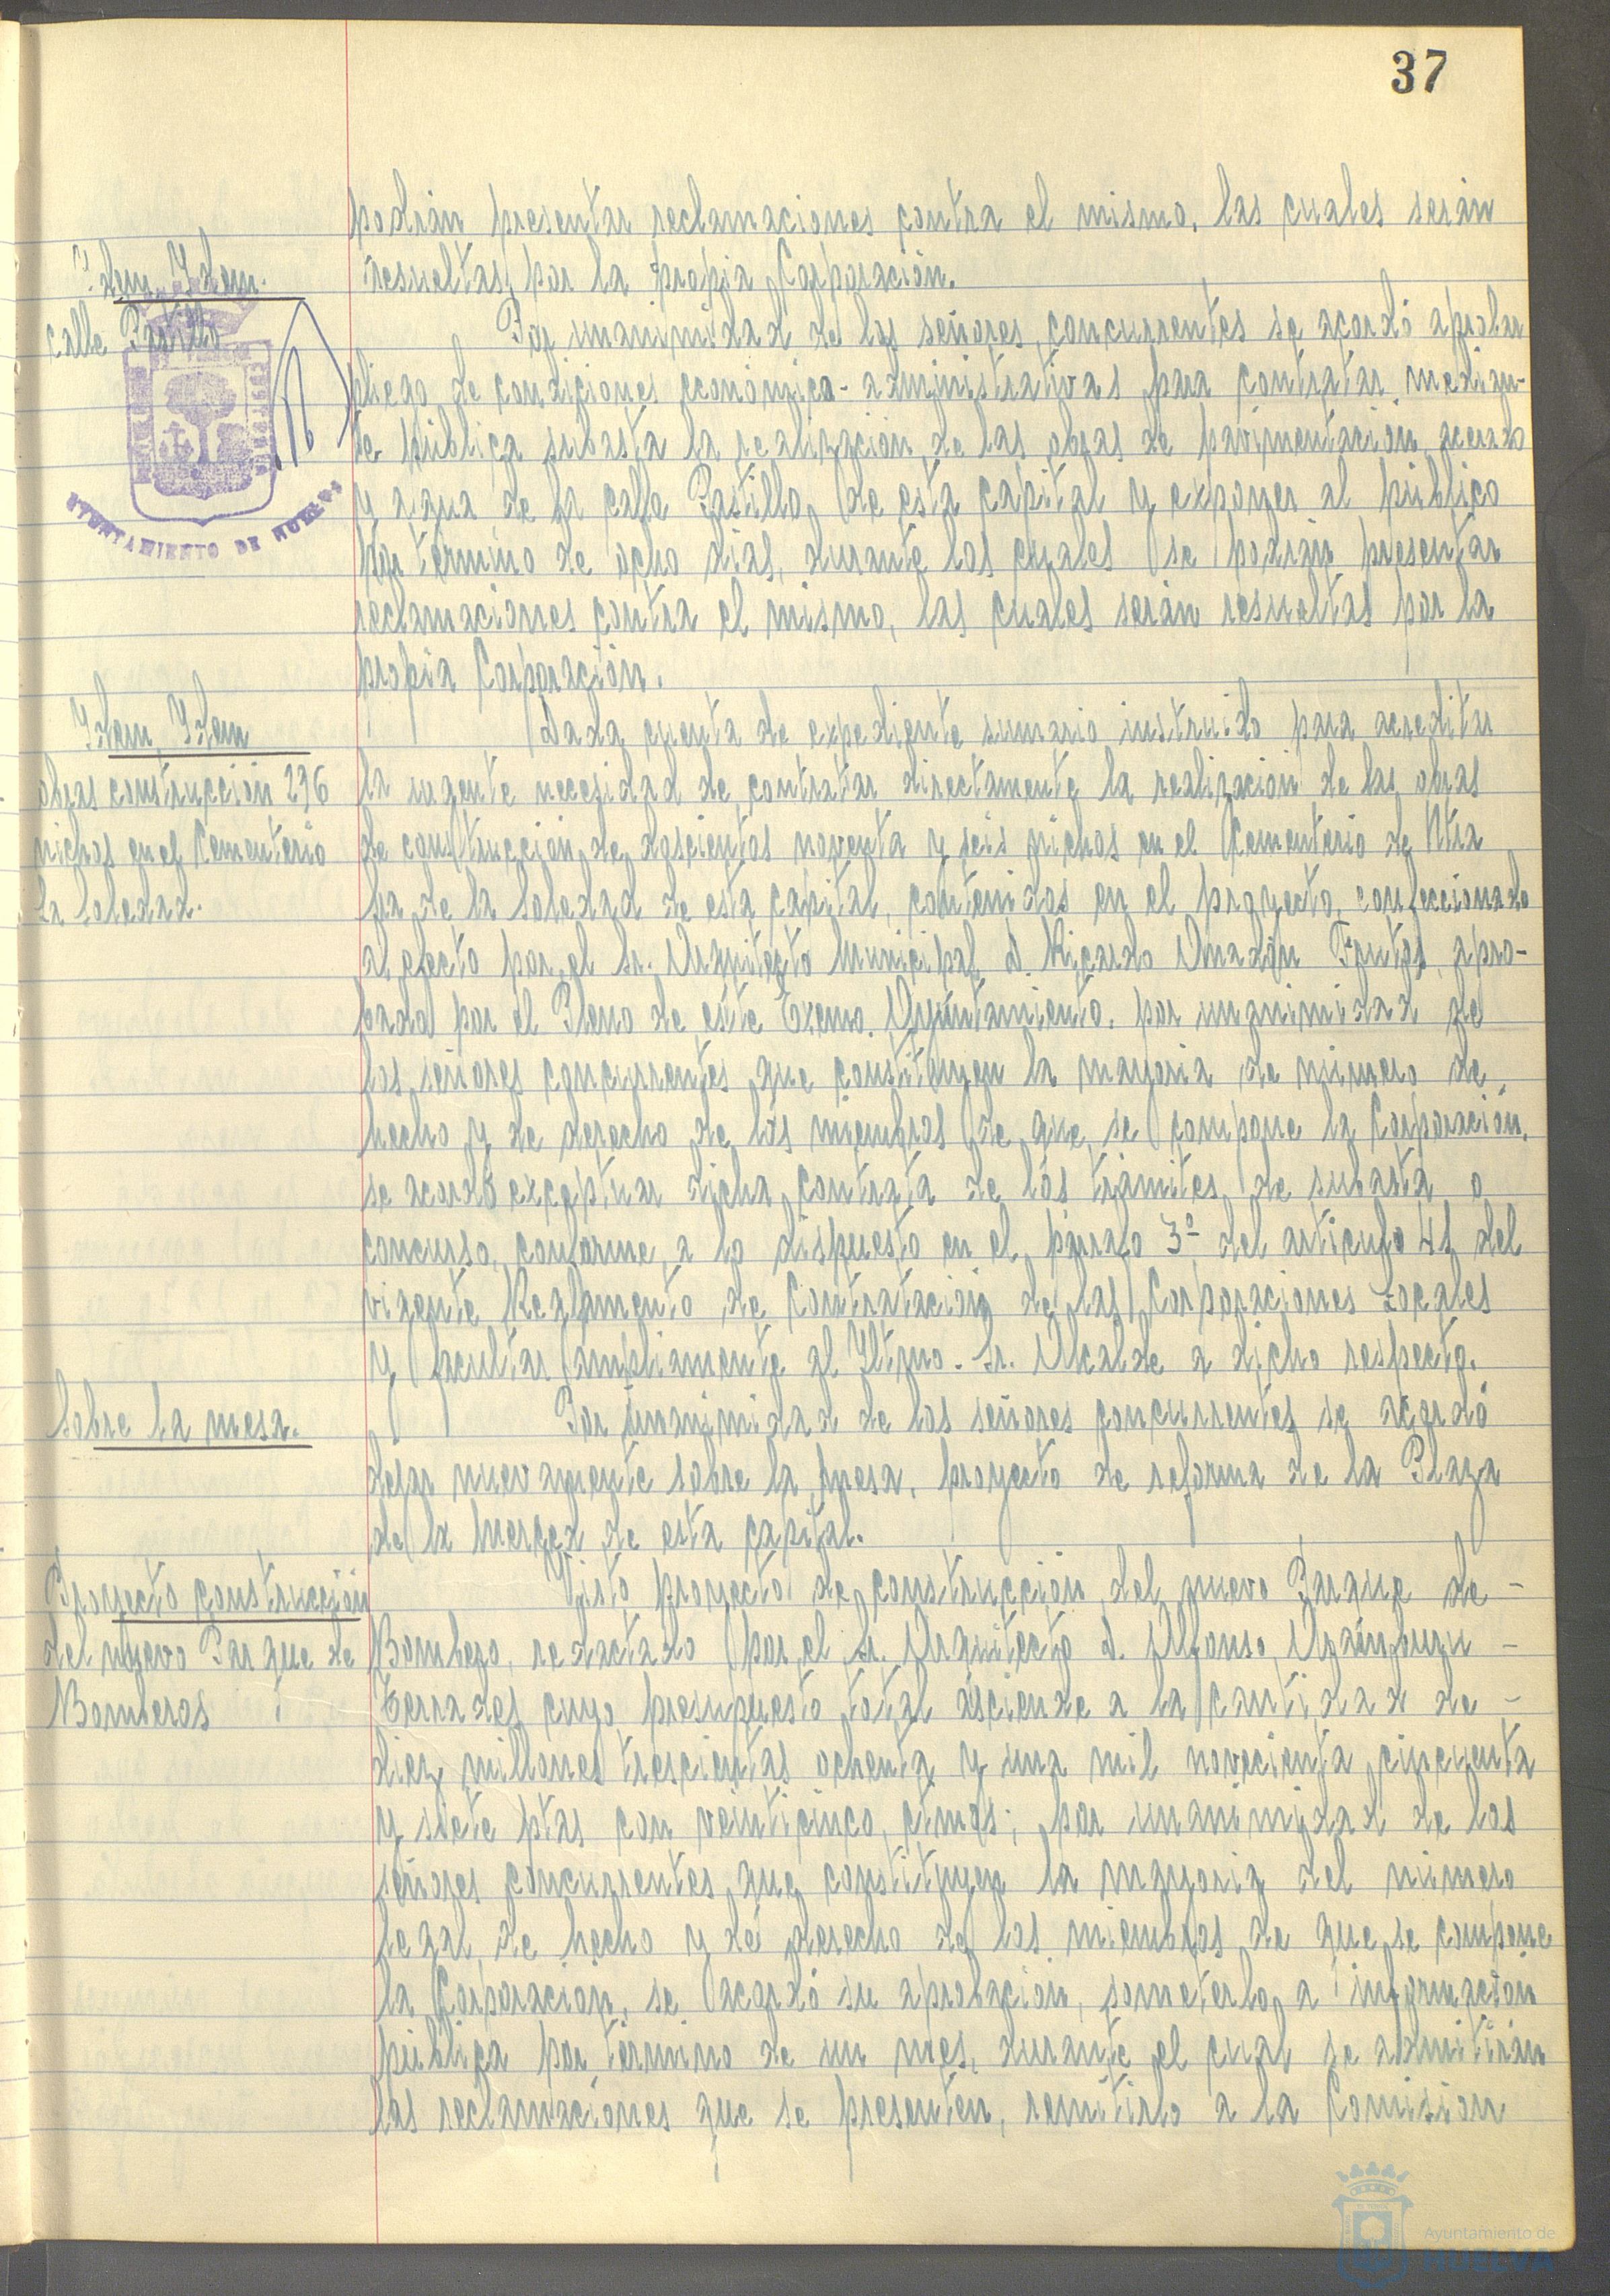 37
podrán presentar reclamaciones contra el mismo, las cuales serán
resueltas por la propia Corporación.
Idem, Idem.
calle Pastillo
Por unanimidad de los señores concurrentes se acordó aprobar
pliego de condiciones económica-administrativas para contratar median-
te pública subasta la realización de las obras de pavimentación, acerado
y agua de la calle Pastillo, de esta capital y exponer al público
por término de ocho días, durante los cuales se podrán presentar
reclamaciones contra el mismo, las cuales serán resueltas por la
propia Corporación.
AYUNTAMIENTO DE HUELVA
Idem, Idem
obras construcción 296
nichos en el Cementerio
la Soledad.
Dada cuenta de expediente sumario instruido para acreditar
la urgente necesidad de contratar directamente la realización de las obras
de construcción de doscientos noventa y seis nichos en el Cementerio de Ntra
Sa de la Soledad de esta capital, contenidos en el proyecto, confeccionado
al efecto por el Sr. Arquitecto Municipal D. Ricardo Anadón Frutos, apro-
bado por el Pleno de este Excmo. Ayuntamiento, por unanimidad de
los señores concurrentes que constituyen la mayoría de número de
hecho y de derecho de los miembros de que se compone la Corporación,
se acordó exceptuar dicha contrata de los trámites de subasta o
concurso, conforme a lo dispuesto en el párrafo 3º del artículo 41 del
vigente Reglamento de Contratación de las Corporaciones Locales
y facultar ampliamente al Iltmo. Sr. Alcalde a dicho respecto.
Sobre la mesa.
Por unanimidad de los señores concurrentes se acordó
dejar nuevamente sobre la mesa, proyecto de reforma de la Plaza
de la Merced de esta capital.
Proyecto construcción
del nuevo Parque de
Bomberos
Visto proyecto de construcción del nuevo Parque de -
Bombero, redactado por el Sr. Arquitecto D. Alfonso Aramburu -
Terrades cuyo presupuesto total asciende a la cantidad de -
diez millones trescientas ochenta y una mil novecienta cincuenta
y siete ptas con veinticinco, ctmos; por unanimidad de los
señores concurrentes que constituyen la mayoría del número
legal de hecho y de derecho de los miembros de que se compone
la Corporación, se acordó su aprobación, someterlo a información
pública por término de un mes, durante el cual se admitirán
las reclamaciones que se presenten, remitirlo a la Comisión
Ayuntamiento de
HUELVA